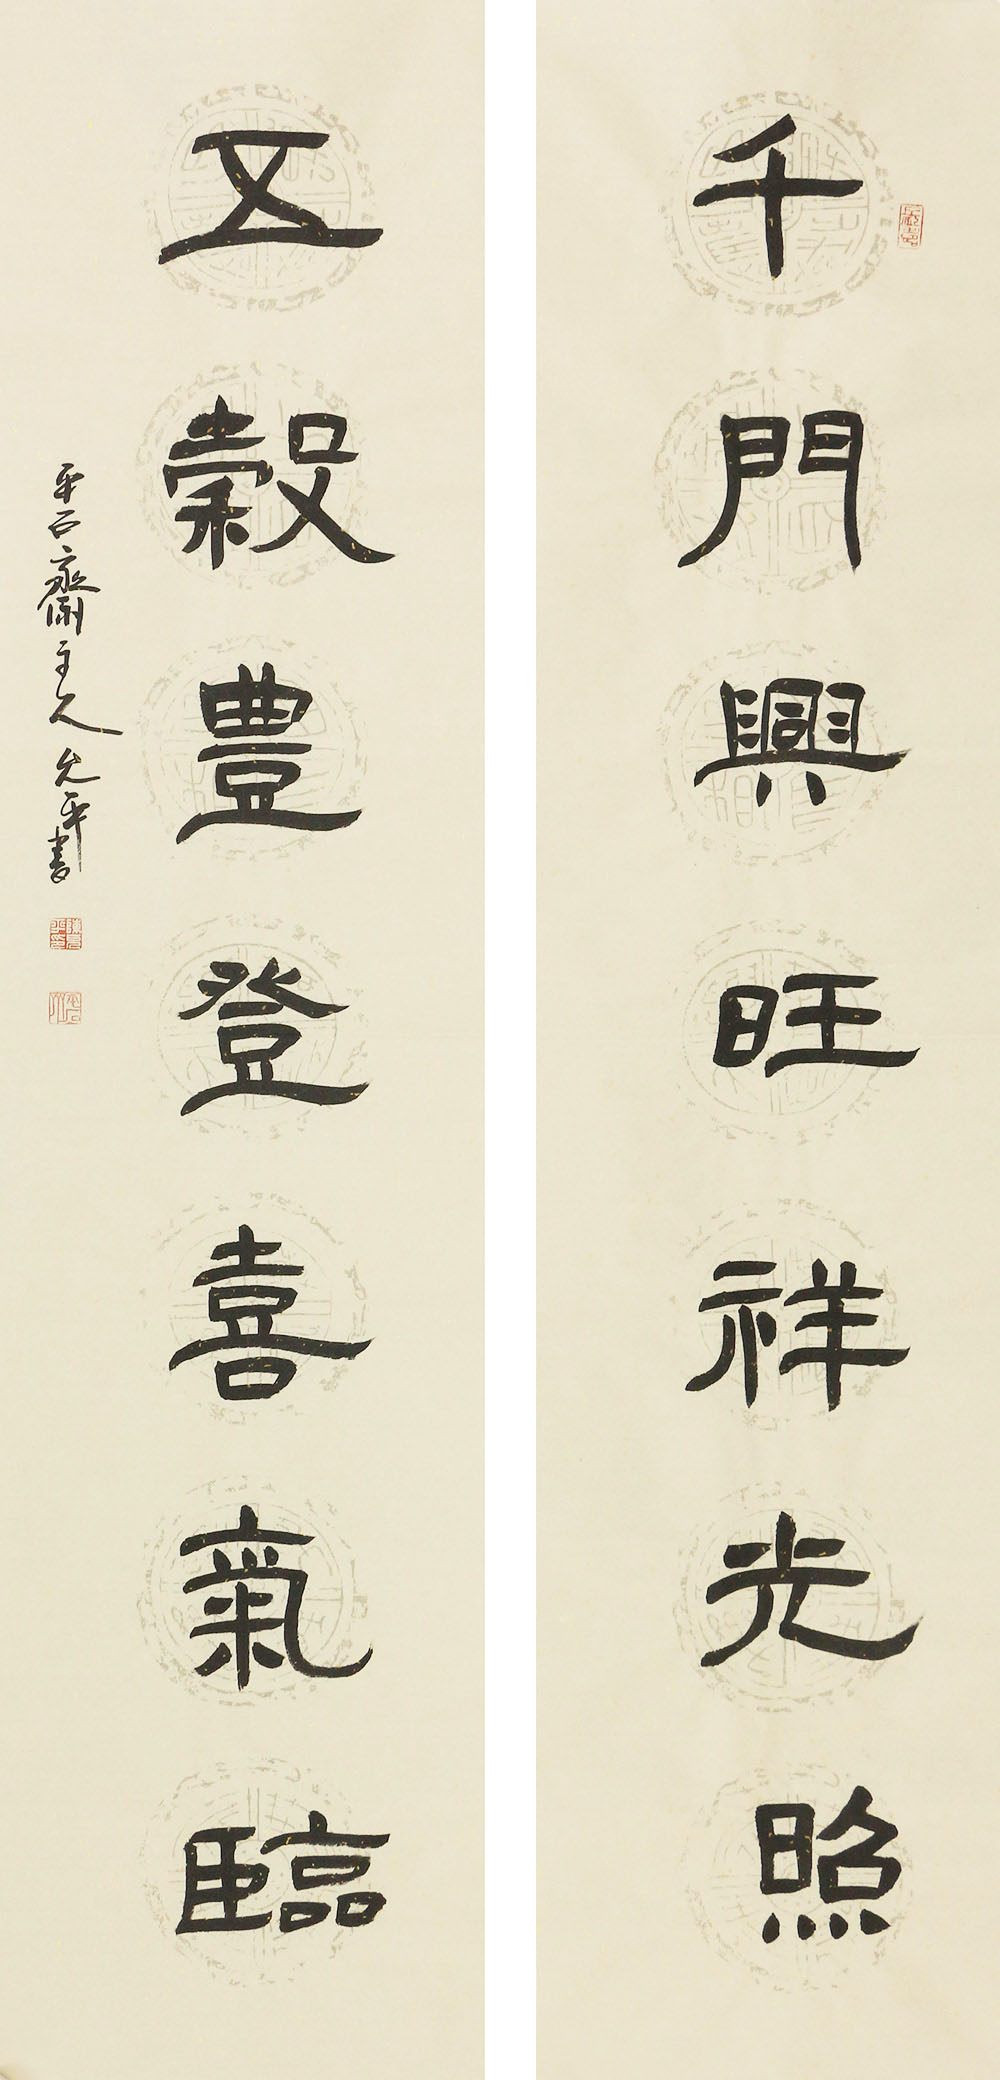 千門興旺祥光照
五穀豐登喜氣臨
平石齋主人允平書